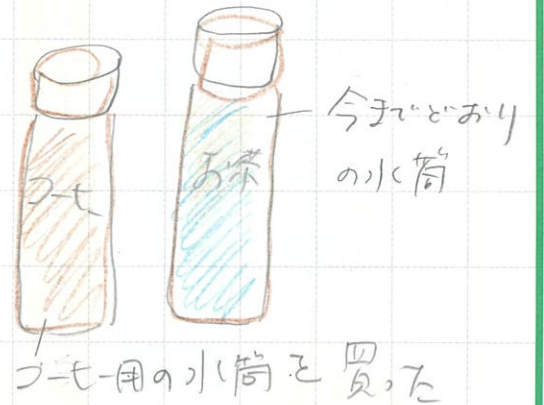 コーヒー
お茶
今までどおり
の水筒
コーヒー用の水筒を買った